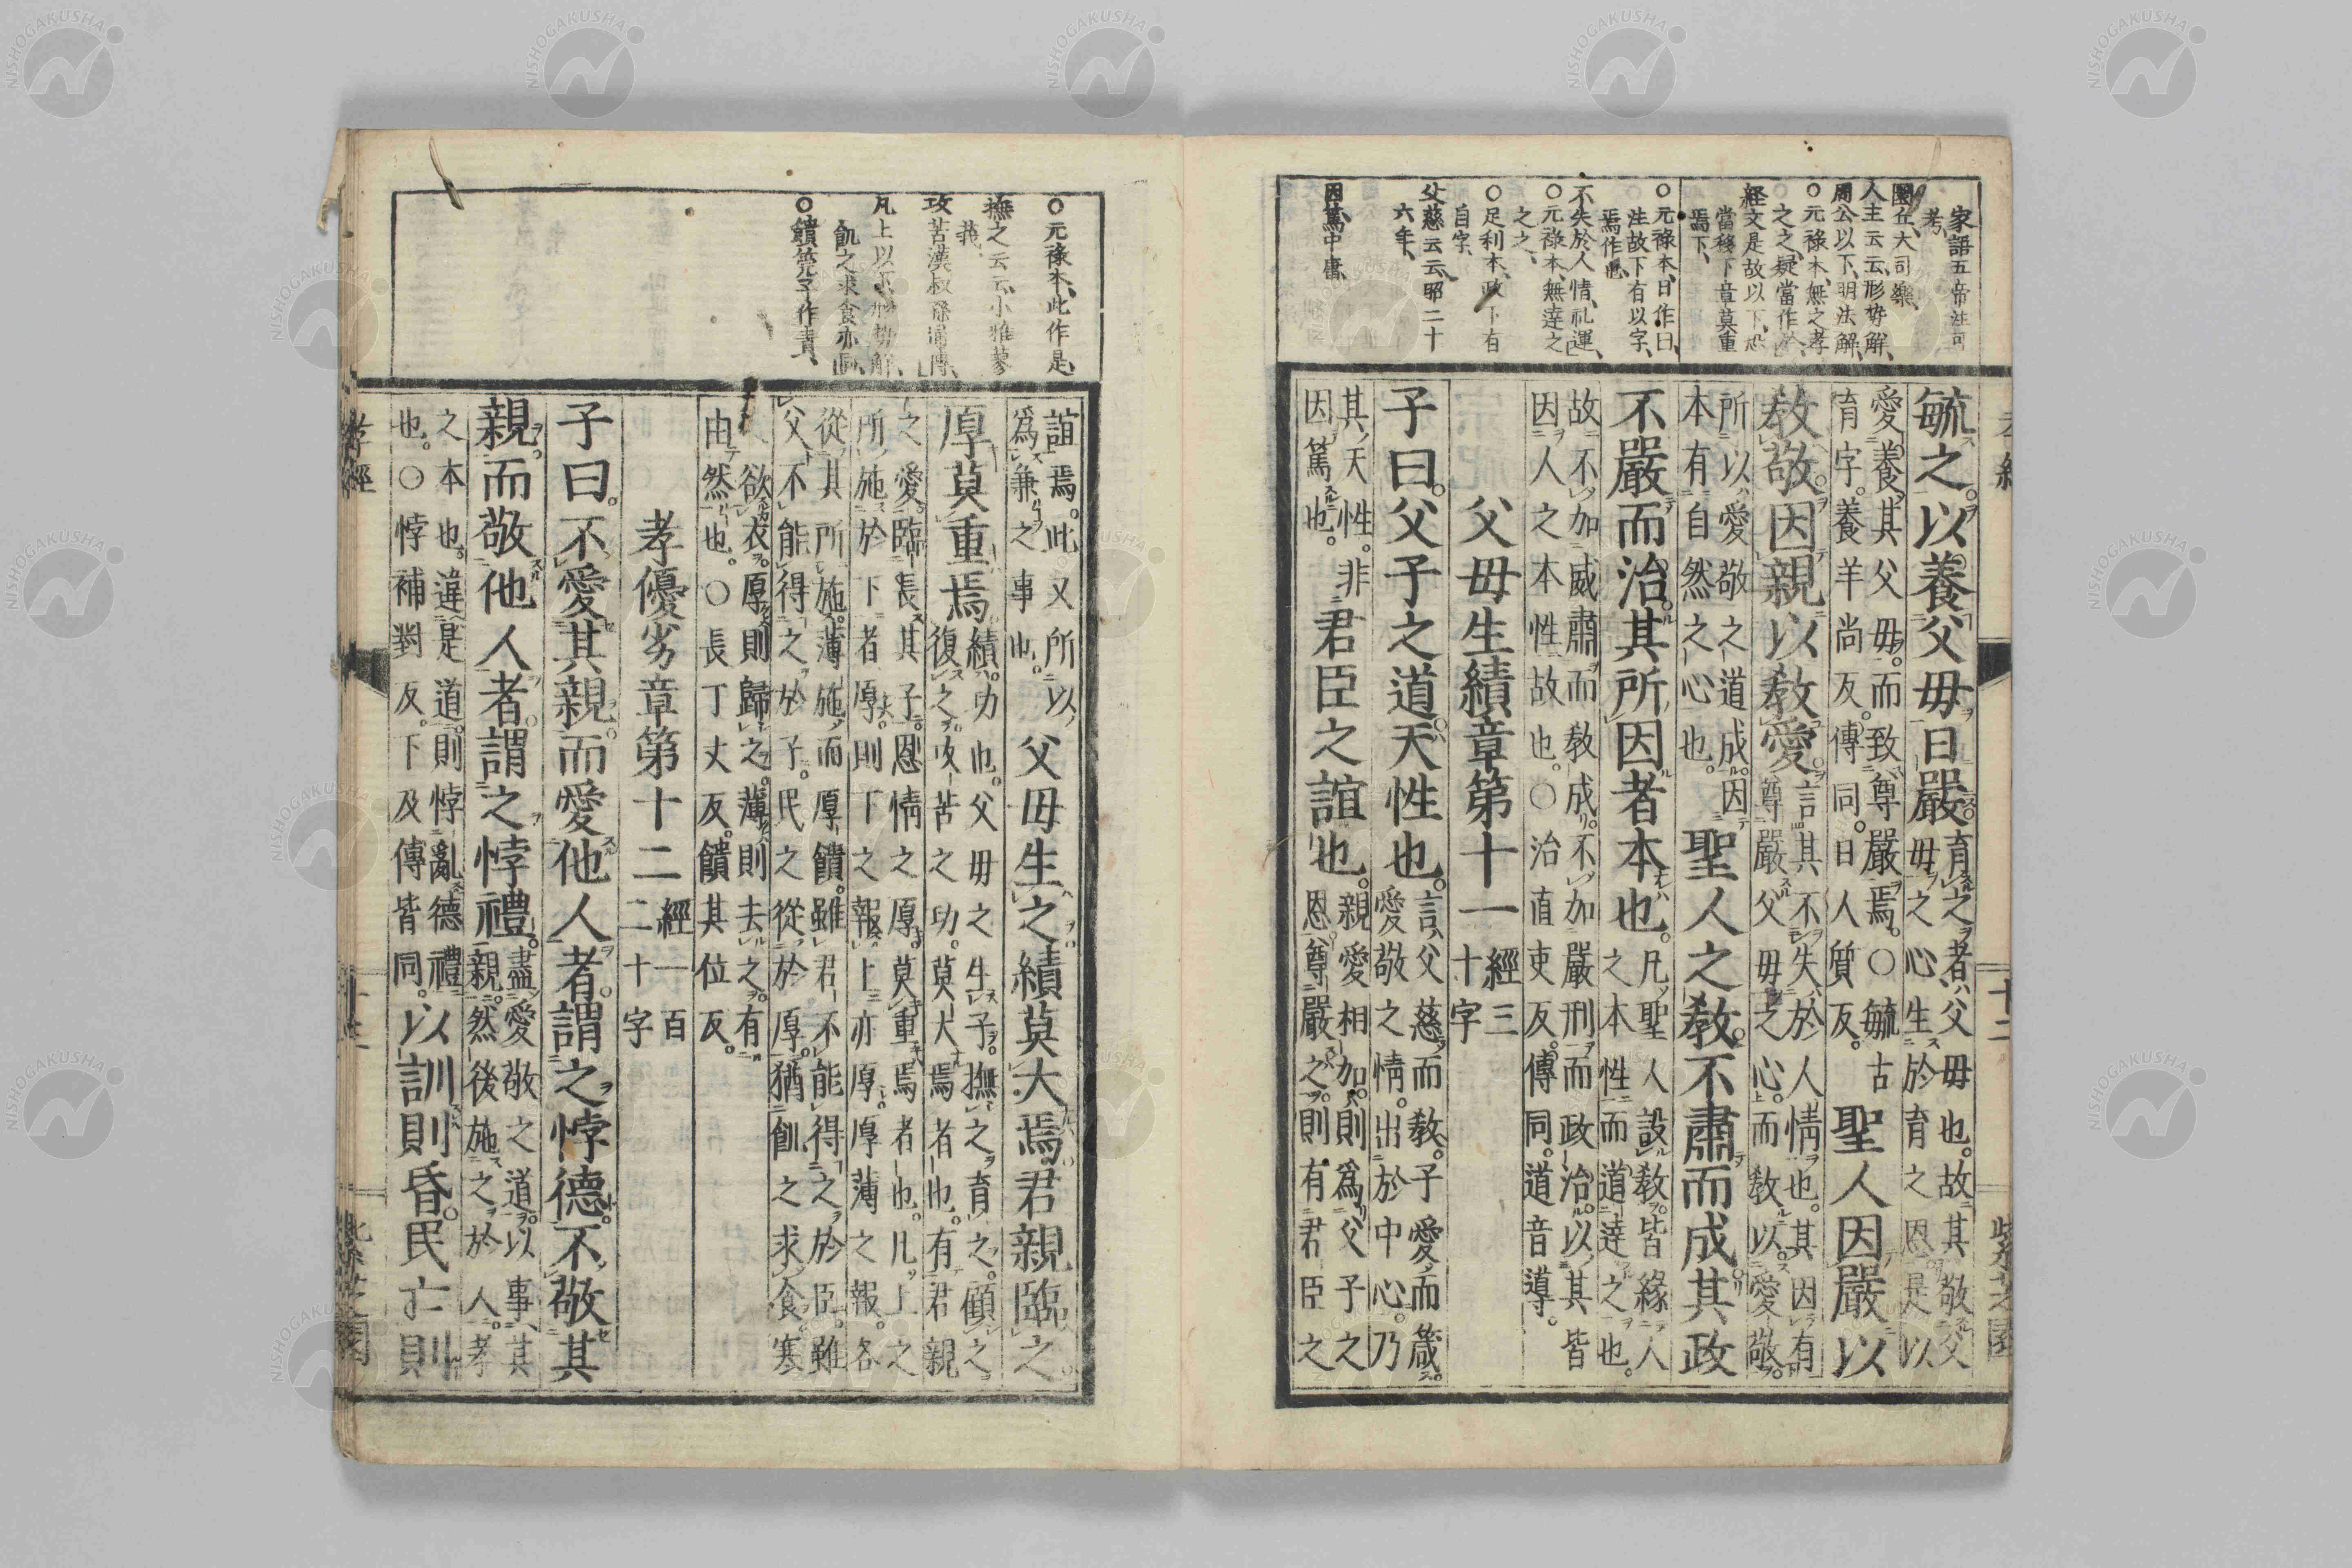 家語五帝注可
考、
圜丘、大司樂、
人主云云、形势解、
周公以下、明法解、
○元祿本、無之孝
之之、疑當作於、
経文是故以下、恐
當移下章莫重
焉下、
○元祿本、日作曰、
注故下有以字、
焉作也、
不失於人情、礼運、
○元祿本、無達之
之之、
○足利本、政下有
自字、
父慈云云、昭二十
六年、
因篤、中庸、
毓之。以養父母日嚴。育之者、父母也。故其敬父
母之心、生於育之恩。是以
愛養其父母。而致尊嚴焉。○毓古
育字。養羊尚反。傳同。日人質反。聖人因嚴以
教敬。因親以教愛。言其不失於人情也。其因有
尊嚴父母之心。而教以愛敬。
所以愛敬之道成。因
本有自然之心也。聖人之教。不肅而成。其政
不嚴而治。其所因者本也。凡聖人設教。皆緣人
之本性。而道達之也。
故不加威肅而教成。不加嚴刑而政治。以其皆
因人之本性故也。○治直吏反。傳同。道音導。
父母生績章第十一 經三
十字
子曰。父子之道。天性也。言父慈而教。子愛而箴。
愛敬之情。出於中心。乃
其天性。非
因篤也。君臣之誼也。親愛相加。則爲父子之
恩。尊嚴之。則有君臣之
孝經
十二
紫芝園
○元祿本、此作是、
撫之云云、小雅蓼
莪、
攻苦、漢叔孫通傳、
凡上以下、形势解、
飢之求食亦同、
○饋、筦子作責、
誼焉。此又所以
爲兼之事也。父母生之。績莫大焉。君親臨之。
厚莫重焉。績功也。父母之生子。撫之育之。顧之
復之。攻苦之功。莫大焉者也。有君親
之愛。臨長其子。恩情之厚。莫重焉者也。凡上之
所施於下者厚。則下之報上亦厚。厚薄之報。各
從其所施。薄施而厚饋。雖君不能得之於臣。雖
父不能得之於子。民之從於厚。猶飢之求食。寒
之欲衣。厚則歸之。薄則去之。有
由然也。○長丁丈反。饋其位反。
孝優劣章第十二 經一百
二十字
子曰。不愛其親。而愛他人者。謂之悖德。不敬其
親。而敬他人者。謂之悖禮。盡愛敬之道。以事其
親。然後施之於人。孝
之本也。違是道。則悖亂德禮
也。○悖補對反。下及傳皆同。以訓則昏。民亡則
孝經
紫芝園